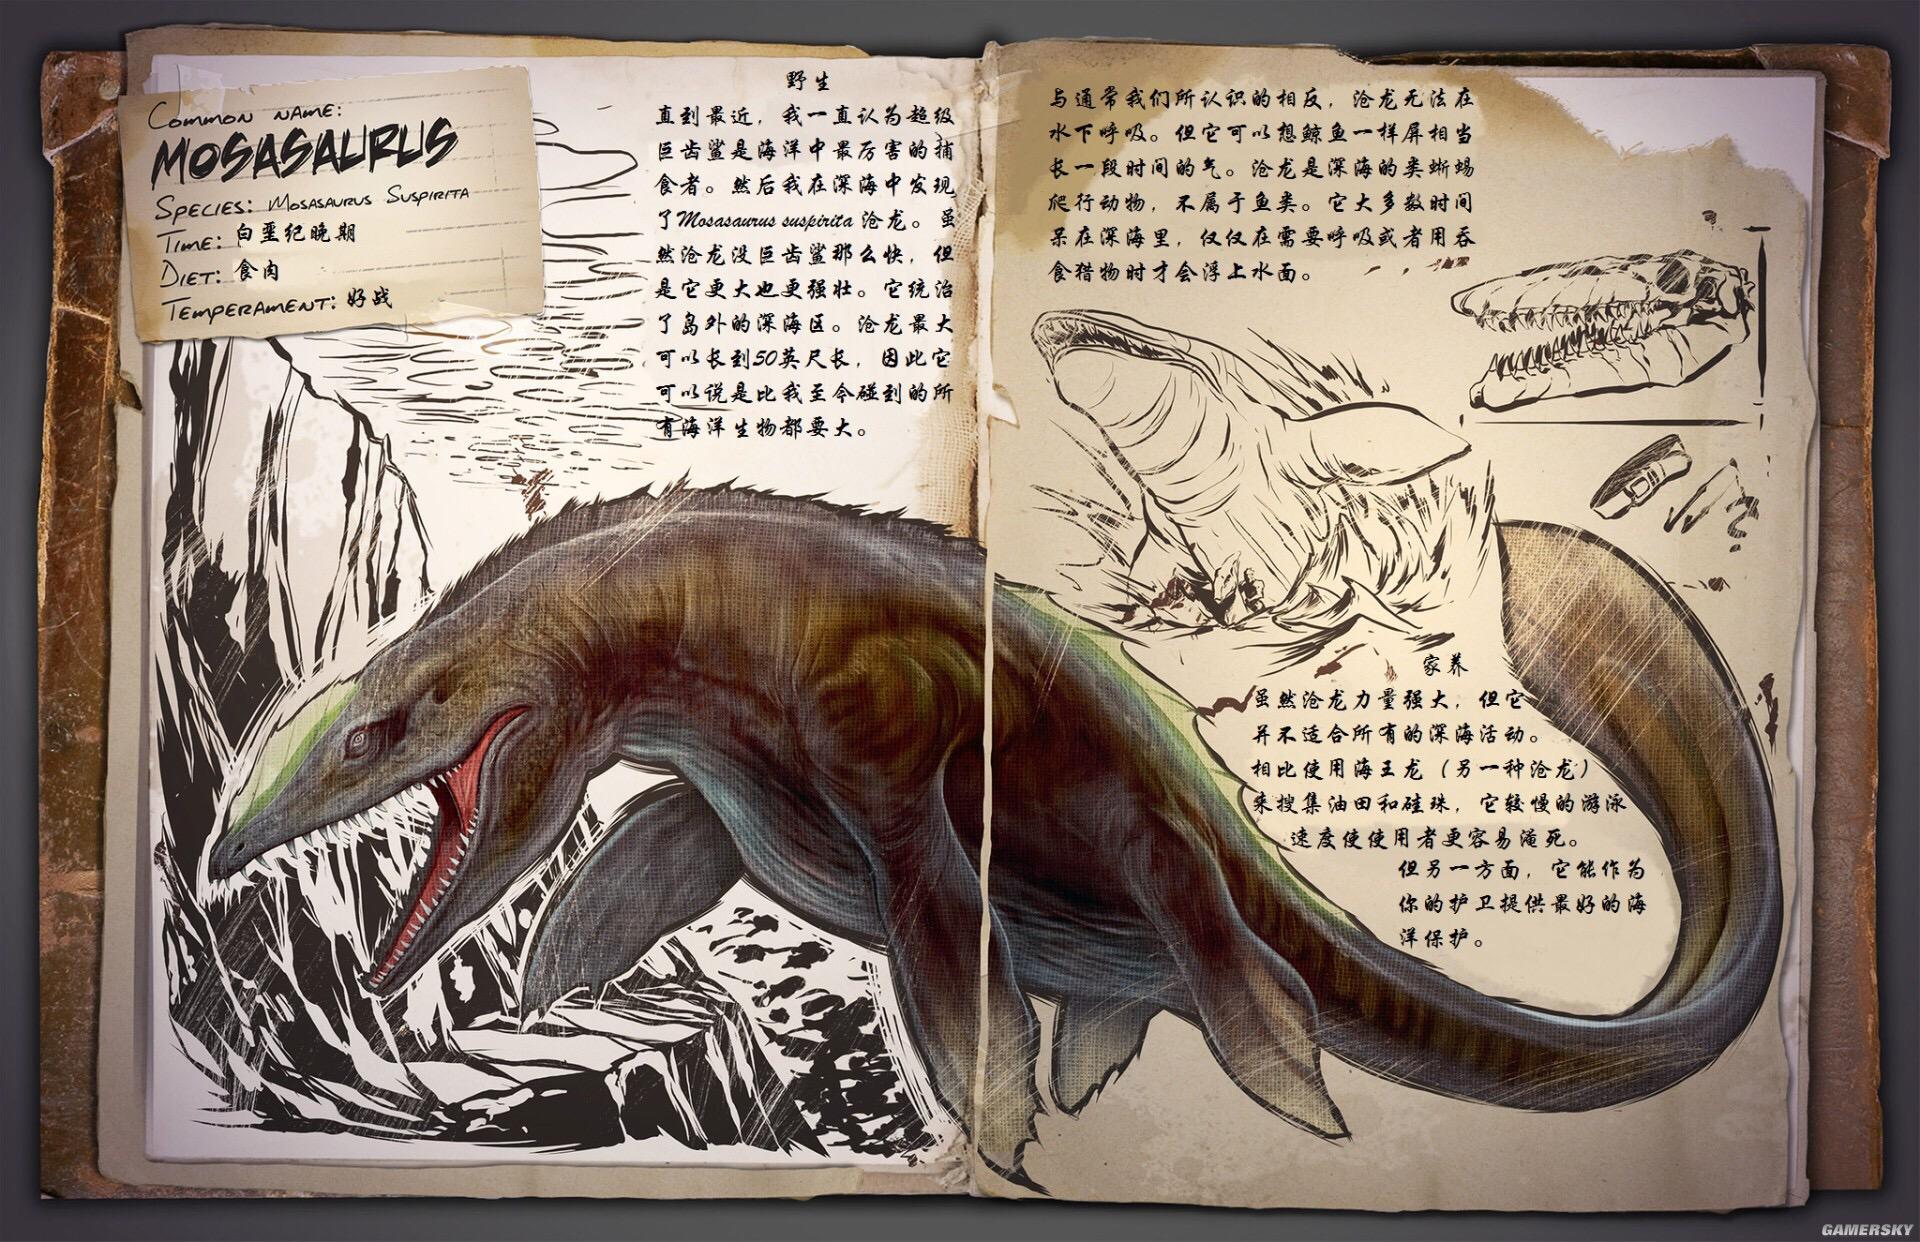 COMMON NAME:
MOSASAURUS
SPECIES: MOSASAURUS SUSPIRITA
TIME: 白垩纪晚期
DIET: 食肉
TEMPERAMENT: 好战
野生
直到最近，我一直认为超级
巨齿鲨是海洋中最厉害的捕
食者。然后我在深海中发现
了Mosasaurus suspirita 沧龙。虽
然沧龙没巨齿鲨那么快，但
是它更大也更强壮。它统治
了岛外的深海区。沧龙最大
可以长到50英尺长，因此它
可以说是比我至今碰到的所
有海洋生物都要大。
与通常我们所认识的相反，沧龙无法在
水下呼吸。但它可以想鲸鱼一样屏相当
长一段时间的气。沧龙是深海的类蜥蜴
爬行动物，不属于鱼类。它大多数时间
呆在深海里，仅仅在需要呼吸或者用吞
食猎物时才会浮上水面。
家养
虽然沧龙力量强大，但它
并不适合所有的深海活动。
相比使用海王龙（另一种沧龙）
来搜集油田和硅珠，它较慢的游泳
速度使使用者更容易淹死。
但另一方面，它能作为
你的护卫提供最好的海
洋保护。
GAMERSKY